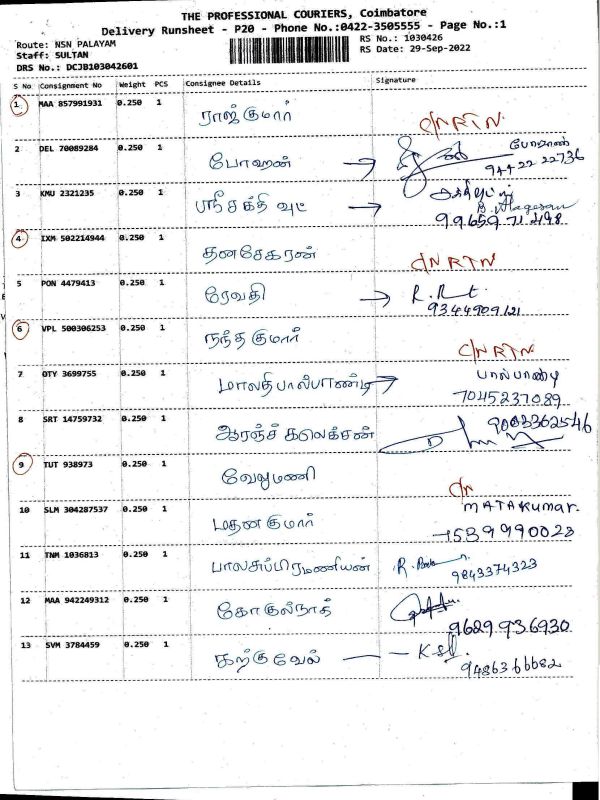 THE PROFESSIONAL COURIERS, Coimbatore
Delivery Runsheet - P20 - Phone No.:0422-3505555 - Page No.:1
Route: NSN PALAYAM
RS No.: 1030426
Staff: SULTAN
RS Date: 29-Sep-2022
DRS No.: DCJB103042601
S No Consignment No Weight PCS Consignee Details Signature
1 MAA 857991931 0.250 1 ராஜ்குமார் C/N RTN
2 DEL 70089284 0.250 1 போஹன் → போஹன்
94422 22736
3 KMU 2321235 0.250 1 ஸ்ரீ சக்தி வுட் →
99659 71498
4 IXM 502214944 0.250 1 தனசேகரன் C/N RTN
5 PON 4479413 0.250 1 ரேவதி →
9344909121
6 VPL 500306253 0.250 1 நந்தகுமார் C/N RTN
7 OTY 3699755 0.250 1 மாலதிபால்பாண்டி → பால்பாண்டி
7045237089
8 SRT 14759732 0.250 1 ஆரஞ்ச் கலெக்சன் 9003362546
9 TUT 938973 0.250 1 வேலுமணி C/N
10 SLM 304287537 0.250 1 மதனகுமார் MATAKumar.
7539990023
11 TNM 1036813 0.250 1 பாலசுப்பிரமணியன்
9843374323
12 MAA 942249312 0.250 1 கோகுல்நாத்
9629936930
13 SVM 3784459 0.250 1 கற்குவேல்
9486366682